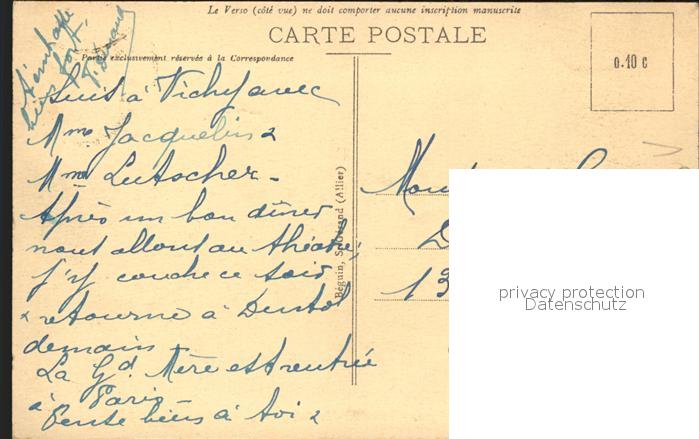 Le Verso (côté vue) ne doit comporter aucune inscription manuscrite
CARTE POSTALE
Partie exclusivement réservée à la Correspondance
0.10 c
bien fort
Suis à Vichy avec
Mme Jacquelin &
Mme Lutscher -
Après un bon dîner
nous allons au théâtre,
j'y couche ce soir
& retourne à
demain
La Gd. Mère est rentrée
à Paris -
Pense bien à toi &
Béguin, St-Gérand (Allier)
13
privacy protection
Datenschutz